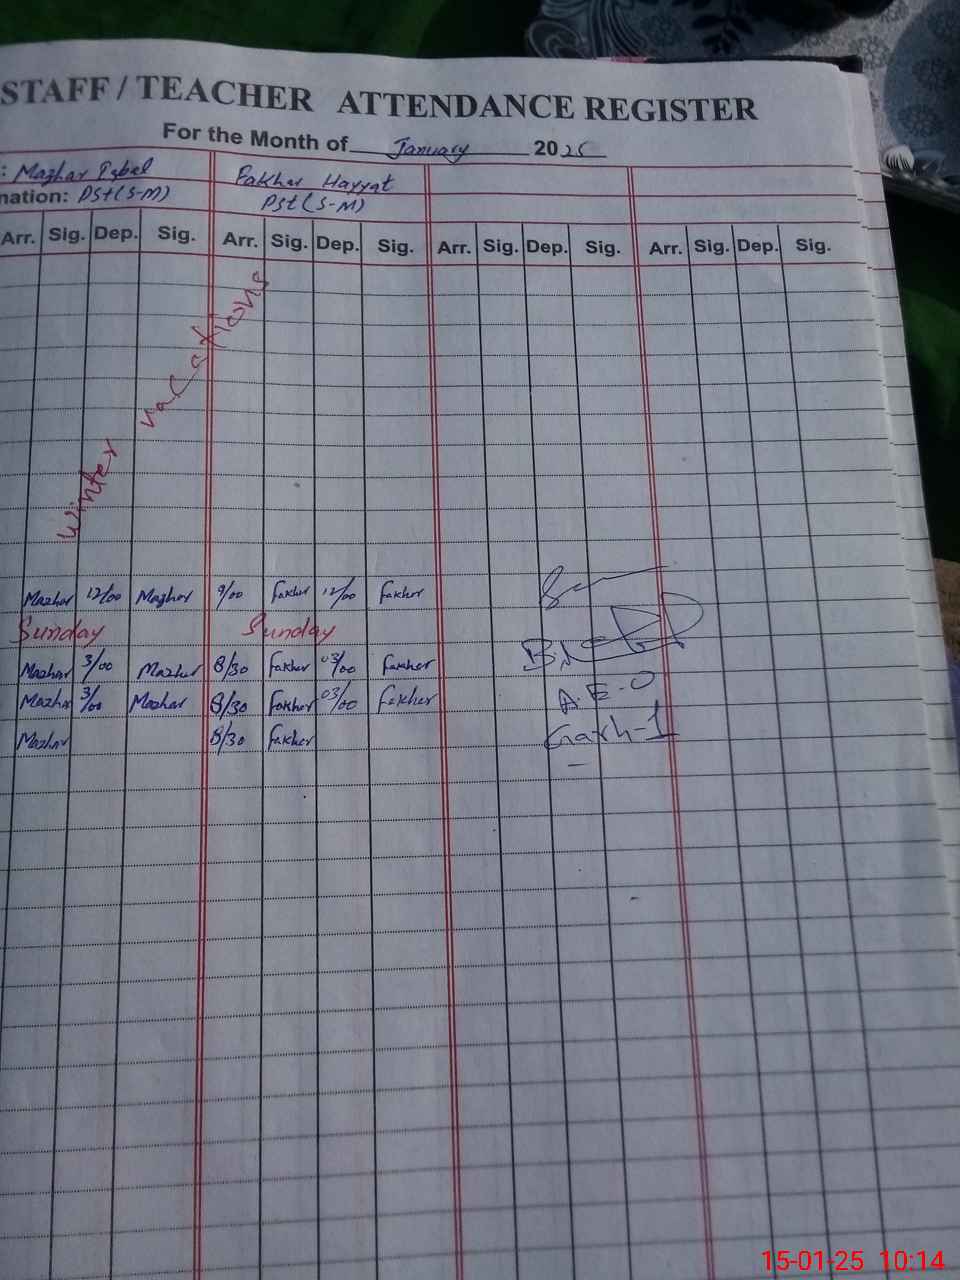 STAFF / TEACHER ATTENDANCE REGISTER
For the Month of January 2025
: Mazhar Iqbal Fakhar Hayyat
nation: PST(S-M) PST(S-M)
Arr. Sig. Dep. Sig. Arr. Sig. Dep. Sig. Arr. Sig. Dep. Sig. Arr. Sig. Dep. Sig.
winter vacations
Mazhar 12/00 Mazhar 9/00 Fakher 12/00 Fakher
Sunday Sunday
Mazhar 3/00 Mazhar 8/30 Fakher 03/00 Fakher
Mazhar 3/00 Mazhar 8/30 Fakher 03/00 Fakher
A.E.O
Mazhar 8/30 Fakher
Garh-1
15-01-25 10:14